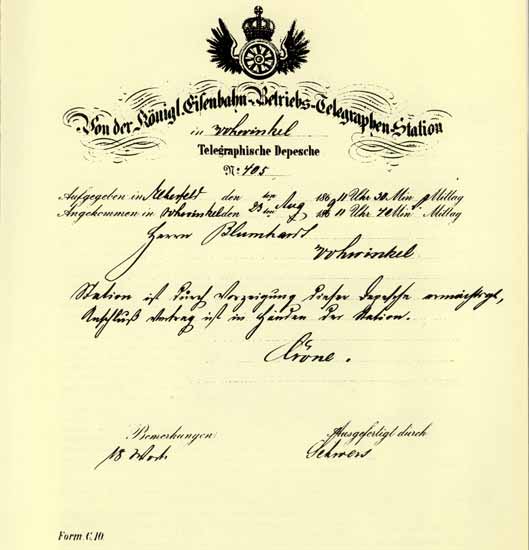 Von der Königl. Eisenbahn-Betriebs-Telegraphen-Station
in Vohwinkel
Telegraphische Depesche
No 405
Aufgegeben in Elberfeld den ten 186 11 Uhr 30 Min Mittag
Angekommen in Vohwinkel den 23 ten Aug 186 11 Uhr 40 Min Mittag
Herrn Blumhardt
Vohwinkel
Station ist durch Vorzeigung dieser Depesche ermächtigt,
Anschluß Vertrag ist in Händen der Station.
Cröne.
Bemerkungen: Ausgefertigt durch
18 Wort.
Form C.10.